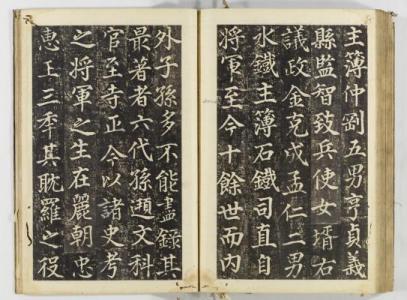 主簿仲剛五男亨貞義
縣監智致兵使女壻右
議政金克成孟仁二男
水鐵主簿石鐵司直自
將軍至今十餘世而內
外子孫多不能盡錄其
最著者六代孫遉文科
官至寺正今以諸史考
之將軍之生在麗朝忠
惠王三年其耽羅之役